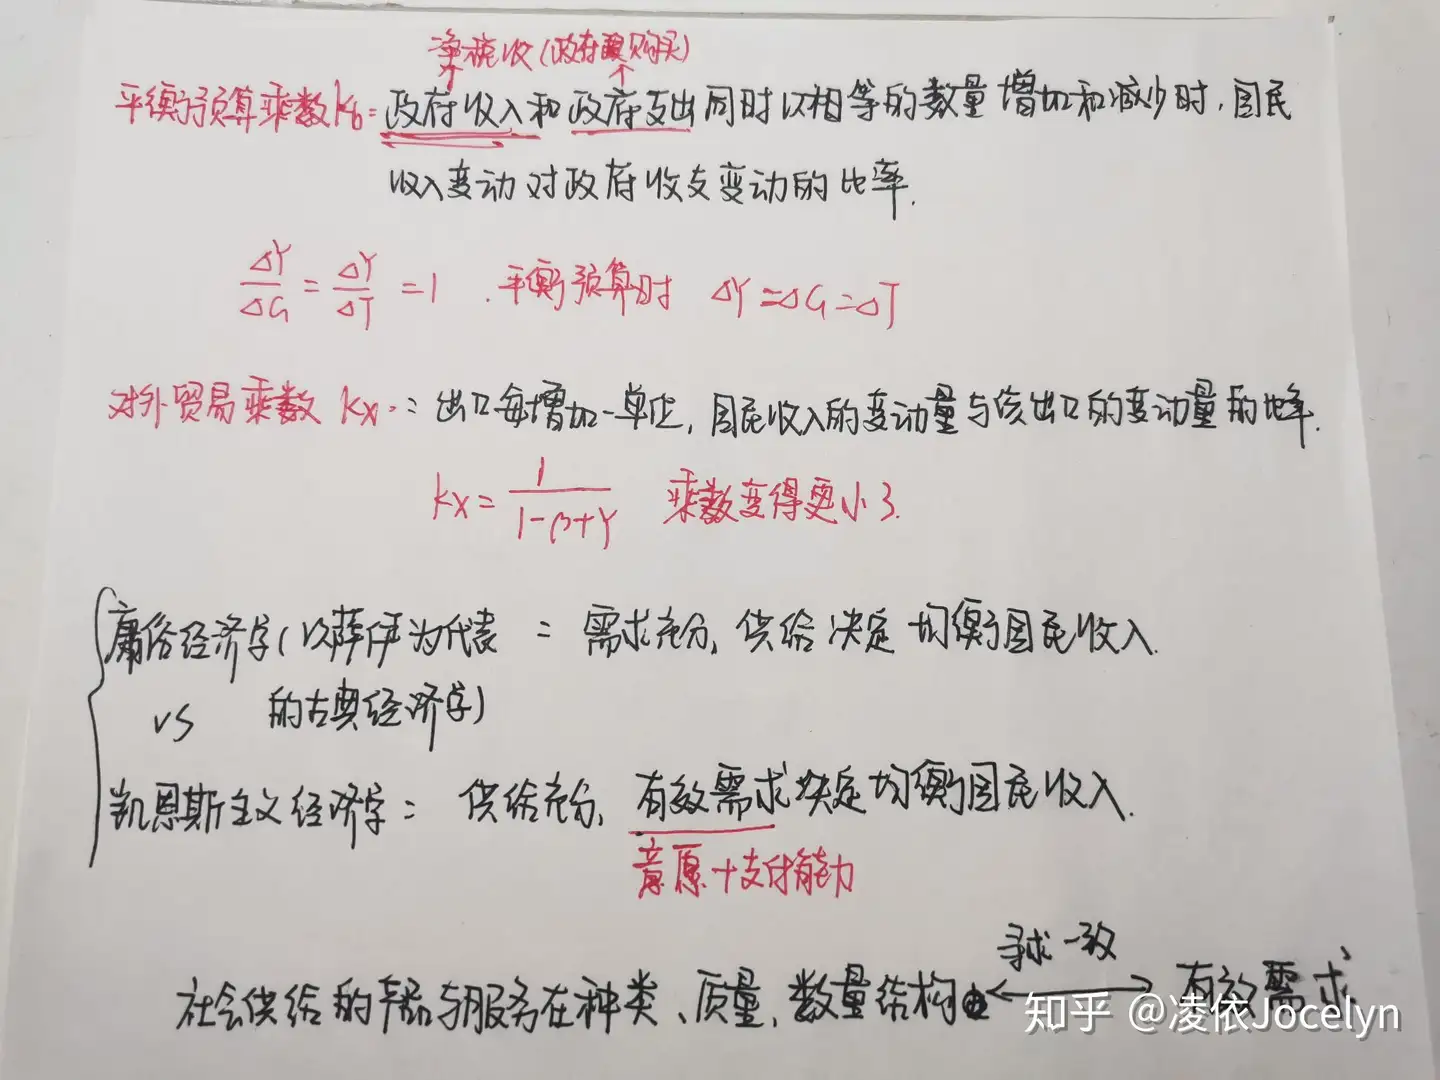 净税收(政府购买)
平衡预算乘数kb=政府收入和政府支出同时以相等的数量增加和减少时,国民
收入变动对政府收支变动的比率.
ΔY/ΔG = ΔY/ΔT = 1 . 平衡预算时 ΔY=ΔG=ΔT
对外贸易乘数 kx. = 出口每增加一单位, 国民收入的变动量与该出口的变动量的比率.
kx = 1/(1-β+γ) 乘数变得更小了.
庸俗经济学(以萨伊为代表 = 需求充分, 供给决定均衡国民收入.
vs 的古典经济学)
凯恩斯主义经济学 = 供给充分, 有效需求决定均衡国民收入.
意愿+支付能力
寻求一致
社会供给的产品与服务在种类、质量、数量结构 ⟷ 有效需求
知乎 @凌依Jocelyn